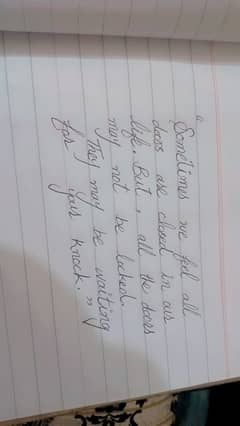 " Sometimes we feel all
doors are closed in our
life. But, all the doors
may not be locked.
They may be waiting
for your knock. "